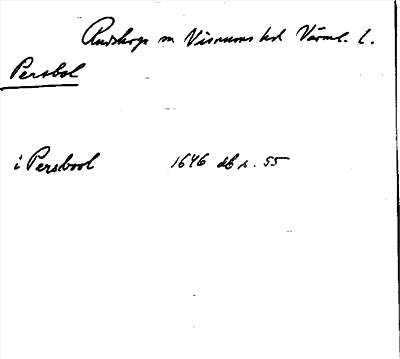 Rudskoga sn Visnums hd Värml. l.
Persbol
i Persbool 1646 db s. 55